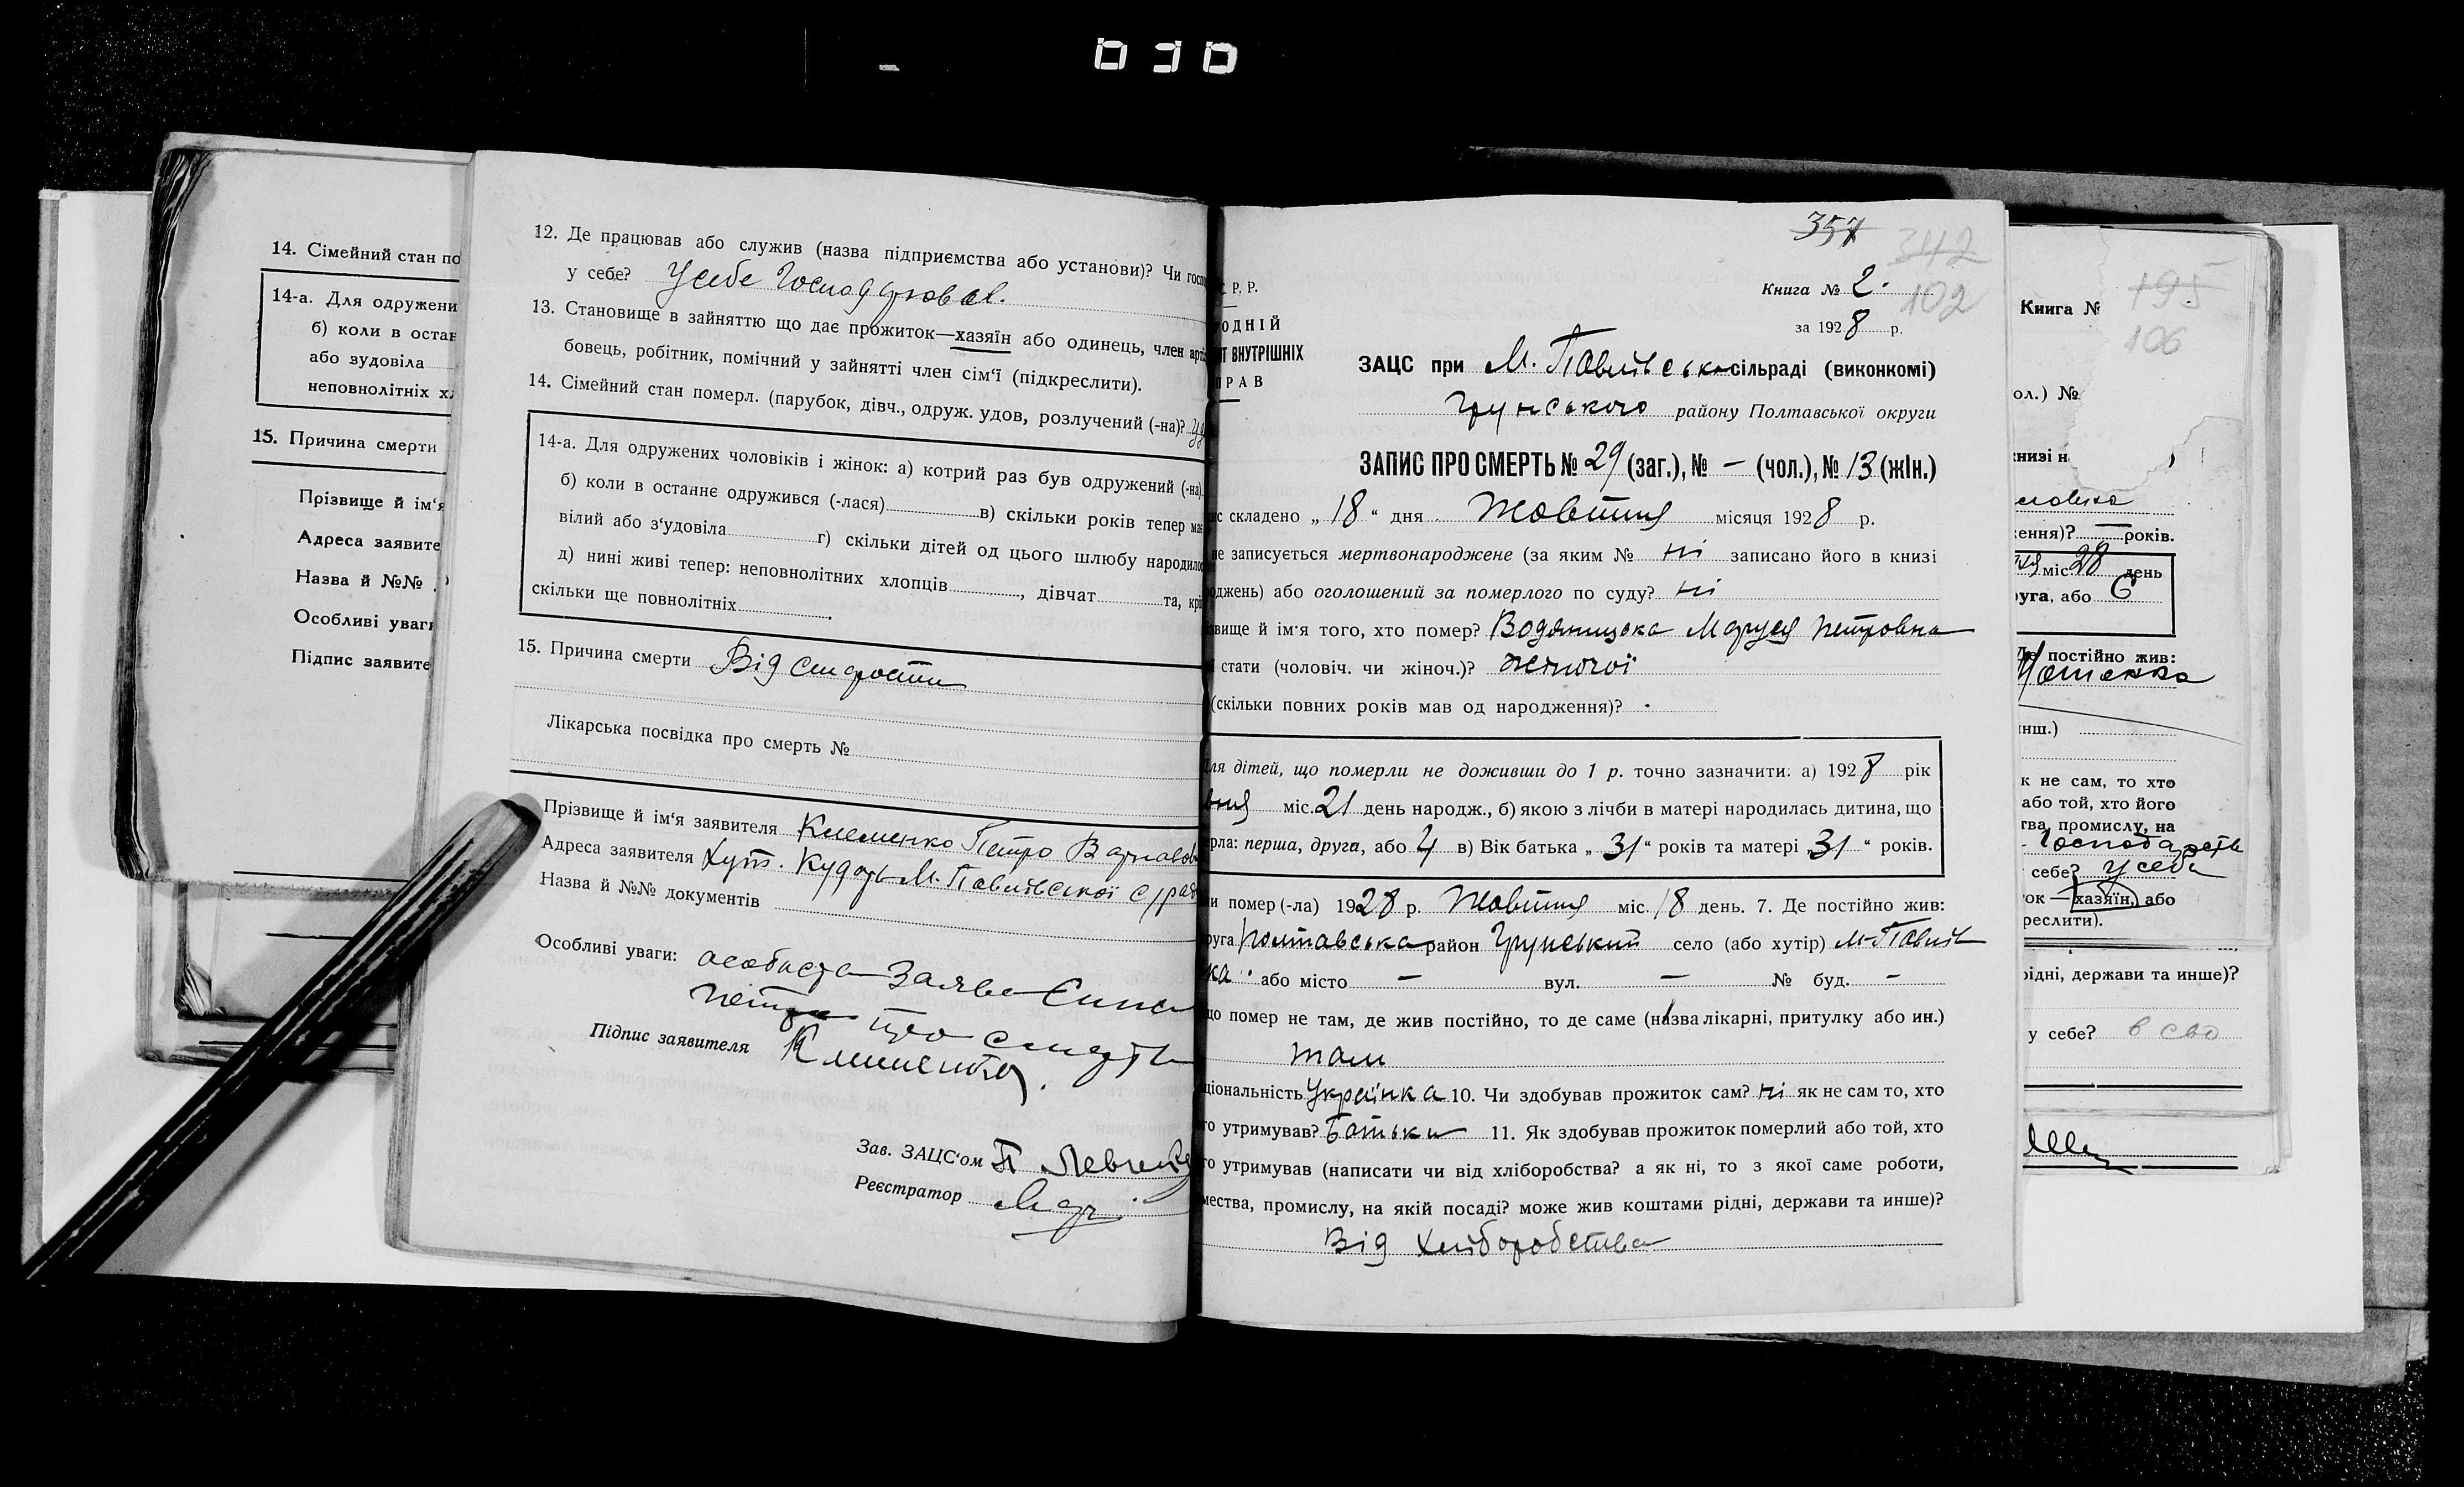 030
14. Сімейний стан по
14-а. Для одружени
б) коли в остан
або вудовіла
неповнолітніх х
15. Причина смерти
Прізвище й ім'я
Адреса заявите
Назва й №№
Особливі уваги
Підпис заявите
12. Де працював або служив (назва підприємства або установи)? Чи госпо
у себе? У себе Господарював.
13. Становище в зайняттю що дає прожиток—хазяїн або одинець, член арті
бовець, робітник, помічний у зайнятті член сім'ї (підкреслити).
14. Сімейний стан померл. (парубок, дівч., одруж. удов, розлучений (-на)? уд
14-а. Для одружених чоловіків і жінок: а) котрий раз був одружений (-на)
б) коли в останнє одружився (-лася) в) скільки років тепер має
вілий або з'удовіла г) скільки дітей од цього шлюбу народило
д) нині живі тепер: неповнолітніх хлопців , дівчат та, крі
скільки ще повнолітніх .
15. Причина смерти Від старости
Лікарська посвідка про смерть №
Прізвище й ім'я заявителя Клеменко Петро Варлавов
Адреса заявителя Хут. Кударь М. Павлівської с/рад
Назва й №№ документів
Особливі уваги: особиста Заява Сина
Петра про смерть
Підпис заявителя Клименко
Зав. ЗАЦС'ом П Левченко
Реєстратор
357
342
102
С. Р. Р.
Книга № 2.
за 1928 р.
РОДНІЙ
Т ВНУТРІШНІХ
ПРАВ
ЗАЦС при М. Павлівськ сільраді (виконкомі)
Грунського району Полтавської округи
ЗАПИС ПРО СМЕРТЬ № 29 (заг.), № – (чол.), № 13 (жін.)
ис складено „18" дня Жовтня місяця 1928 р.
не записується мертвонароджене (за яким № ні записано його в книзі
роджень) або оголошений за померлого по суду? ні
звище й ім'я того, хто помер? Водяницька Маруся Петровна
стати (чоловіч. чи жіноч.)? жіночої
(скільки повних років мав од народження)? •
Для дітей, що померли не доживши до 1 р. точно зазначити: а) 1928 рік
вня міс. 21 день народж., б) якою з лічби в матері народилась дитина, що
ерла: перша, друга, або 4 в) Вік батька „31" років та матері „31" років.
ли помер (-ла) 1928 р. Жовтня міс. 18 день. 7. Де постійно жив:
руга Полтавська район Грунський село (або хутір) М-Павлів
ка • або місто – вул. – № буд. –
що помер не там, де жив постійно, то де саме (назва лікарні, притулку або ин.)
там
ціональність Українка 10. Чи здобував прожиток сам? ні як не сам то, хто
го утримував? Батьки 11. Як здобував прожиток померлий або той, хто
го утримував (написати чи від хліборобства? а як ні, то з якої саме роботи,
мества, промислу, на якій посаді? може жив коштами рідні, держави та инше)?
Від Хліборобства
Книга №
195
106
ол.) №
книзі н
ження)? – років.
міс. 28 день
руга, або 6
Де постійно жив:
инш.)
к не сам, то хто
або той, хто його
тва, промислу, на
Господарств
себе? у себе
ок — хазяїн, або
реслити).
рідні, держави та инше)?
у себе? в сво